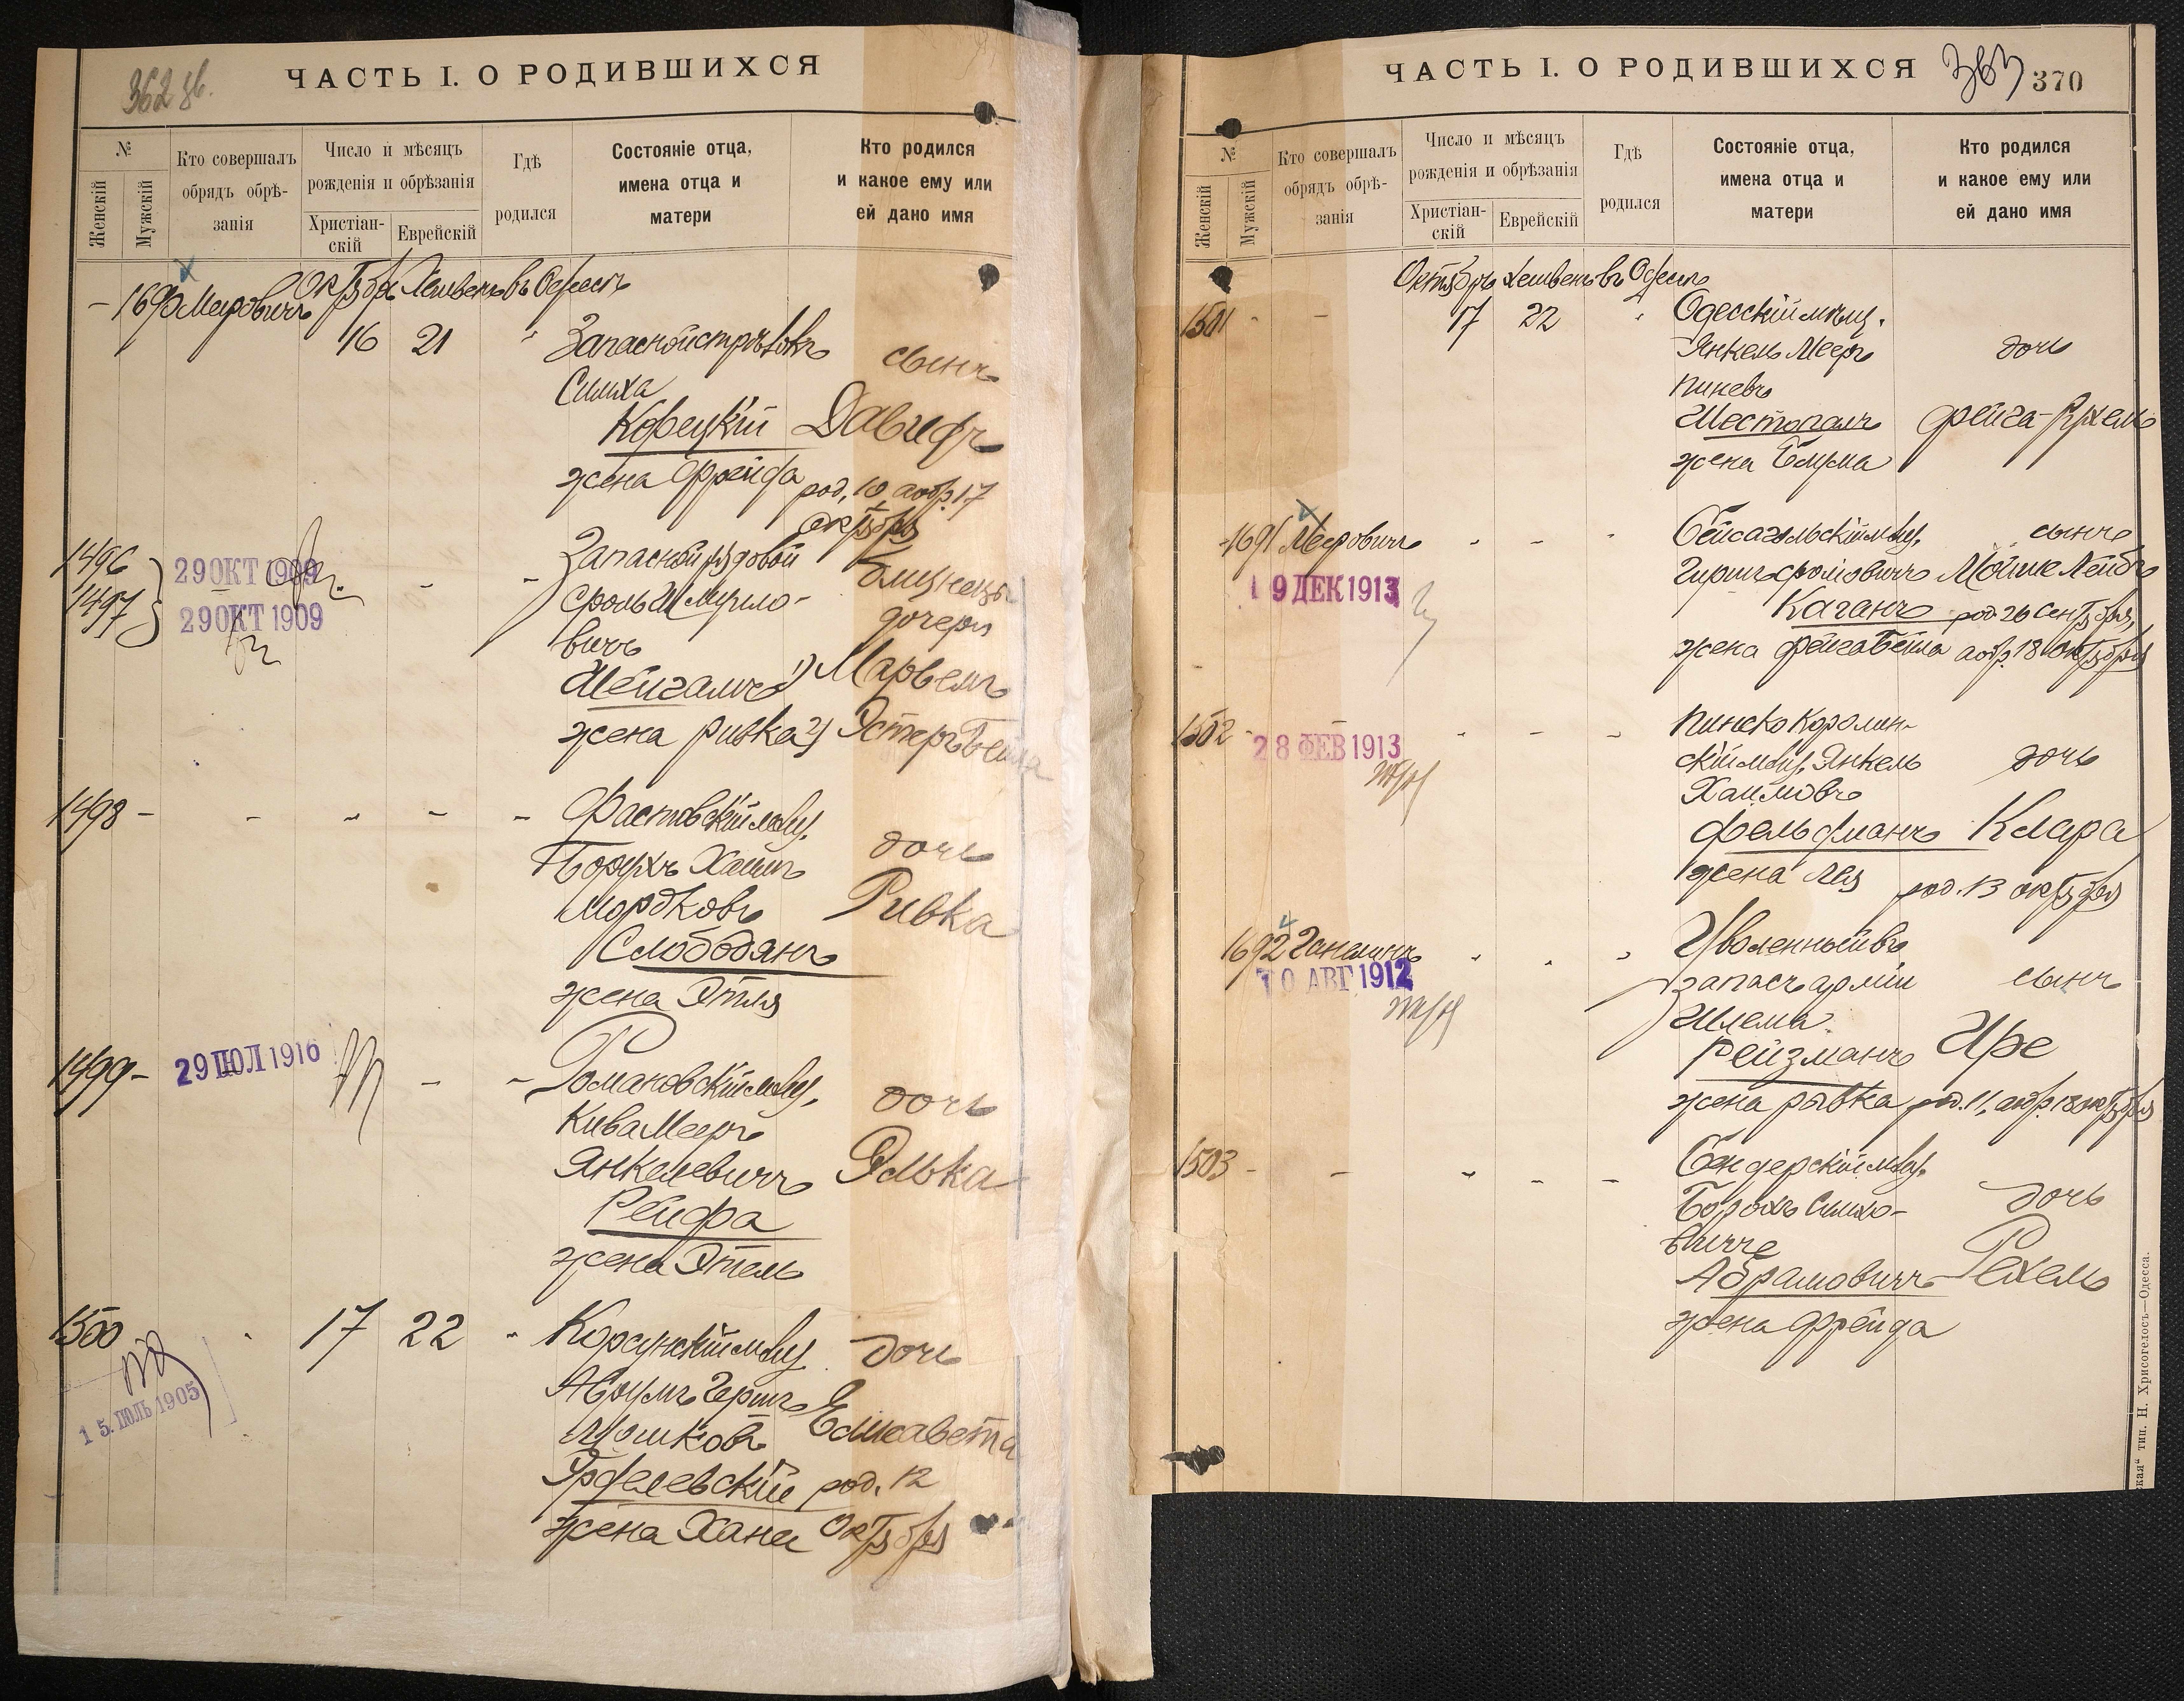 362 об.
ЧАСТЬ I. О РОДИВШИХСЯ
№
Женскій
Мужскій
Кто совершалъ
обрядъ обрѣ-
занія
Число и мѣсяцъ
рожденія и обрѣзанія
Христіан-
скій
Еврейскій
Гдѣ
родился
Состояніе отца,
имена отца и
матери
Кто родился
и какое ему или
ей дано имя
Меировичъ Октябрь Хешвенъ въ Одессѣ
16 21 Запасной стрѣлокъ сынъ
Симха
Корецкій Давидъ
жена Фрейда род. 10, а обр. 17
октября
1496
1497
29 ОКТ 1909
29 ОКТ 1909
Запасной рядовой близнецы
Сроль Шмуило- дочери
вичъ
Шейгамъ 1) Марьемъ
жена Ривка 2) Эстеръ Бейла
1498 - - - - - Фастовскій мѣщ.
Борухъ Хаимъ дочь
Мордковъ Ривка
Слободянъ
жена Этля
1499 - 29 ІЮЛ 1916 - - Романовскій мѣщ. дочь
Кива Мееръ
Янкелевичъ Элька
Рейфа
жена Этель
1500 17 22 Корсунскій мѣщ. дочь
15. ІЮЛЬ 1905
Аврумъ Гершъ
Мошковъ Елисавета
род. 12
жена Хана октября
ЧАСТЬ I. О РОДИВШИХСЯ 363 370
№
Женскій
Мужскій
Кто совершалъ
обрядъ обрѣ-
занія
Число и мѣсяцъ
рожденія и обрѣзанія
Христіан-
скій
Еврейскій
Гдѣ
родился
Состояніе отца,
имена отца и
матери
Кто родился
и какое ему или
ей дано имя
Октябрь Хешвенъ въ Одессѣ
1501 - - 17 22 Одесскій мѣщ.
Янкель Мееръ дочь
Пиневъ
Шестопалъ Фейга-Рухель
жена Блума
-1691 Меировичъ - - - мѣщ. сынъ
19 ДЕК 1913
Гершъ Сроловичъ Мойше Лейбъ
Каганъ род. 26 сентября,
жена Фейга Бейла а обр. 18 октября
1502 - 28 ФЕВ 1913 - - - Пинско Королин-
скій мѣщ. Янкель дочь
Хаимовъ
Фельдманъ Клара
жена Лея род. 13 октября
1692 Ганелинъ Уволенный въ
10 АВГ 1912
запасъ арміи сынъ
Шлема
Рейзманъ Ире
жена Рывка род. 11, а обр. 18 октября
1503 - - - - - Бендерскій мѣщ.
Борохъ Симхо- дочь
вичъ
Абрамовичъ Рехель
жена Фрейда
кая“ тип. Н. Хрисогелосъ—Одесса.